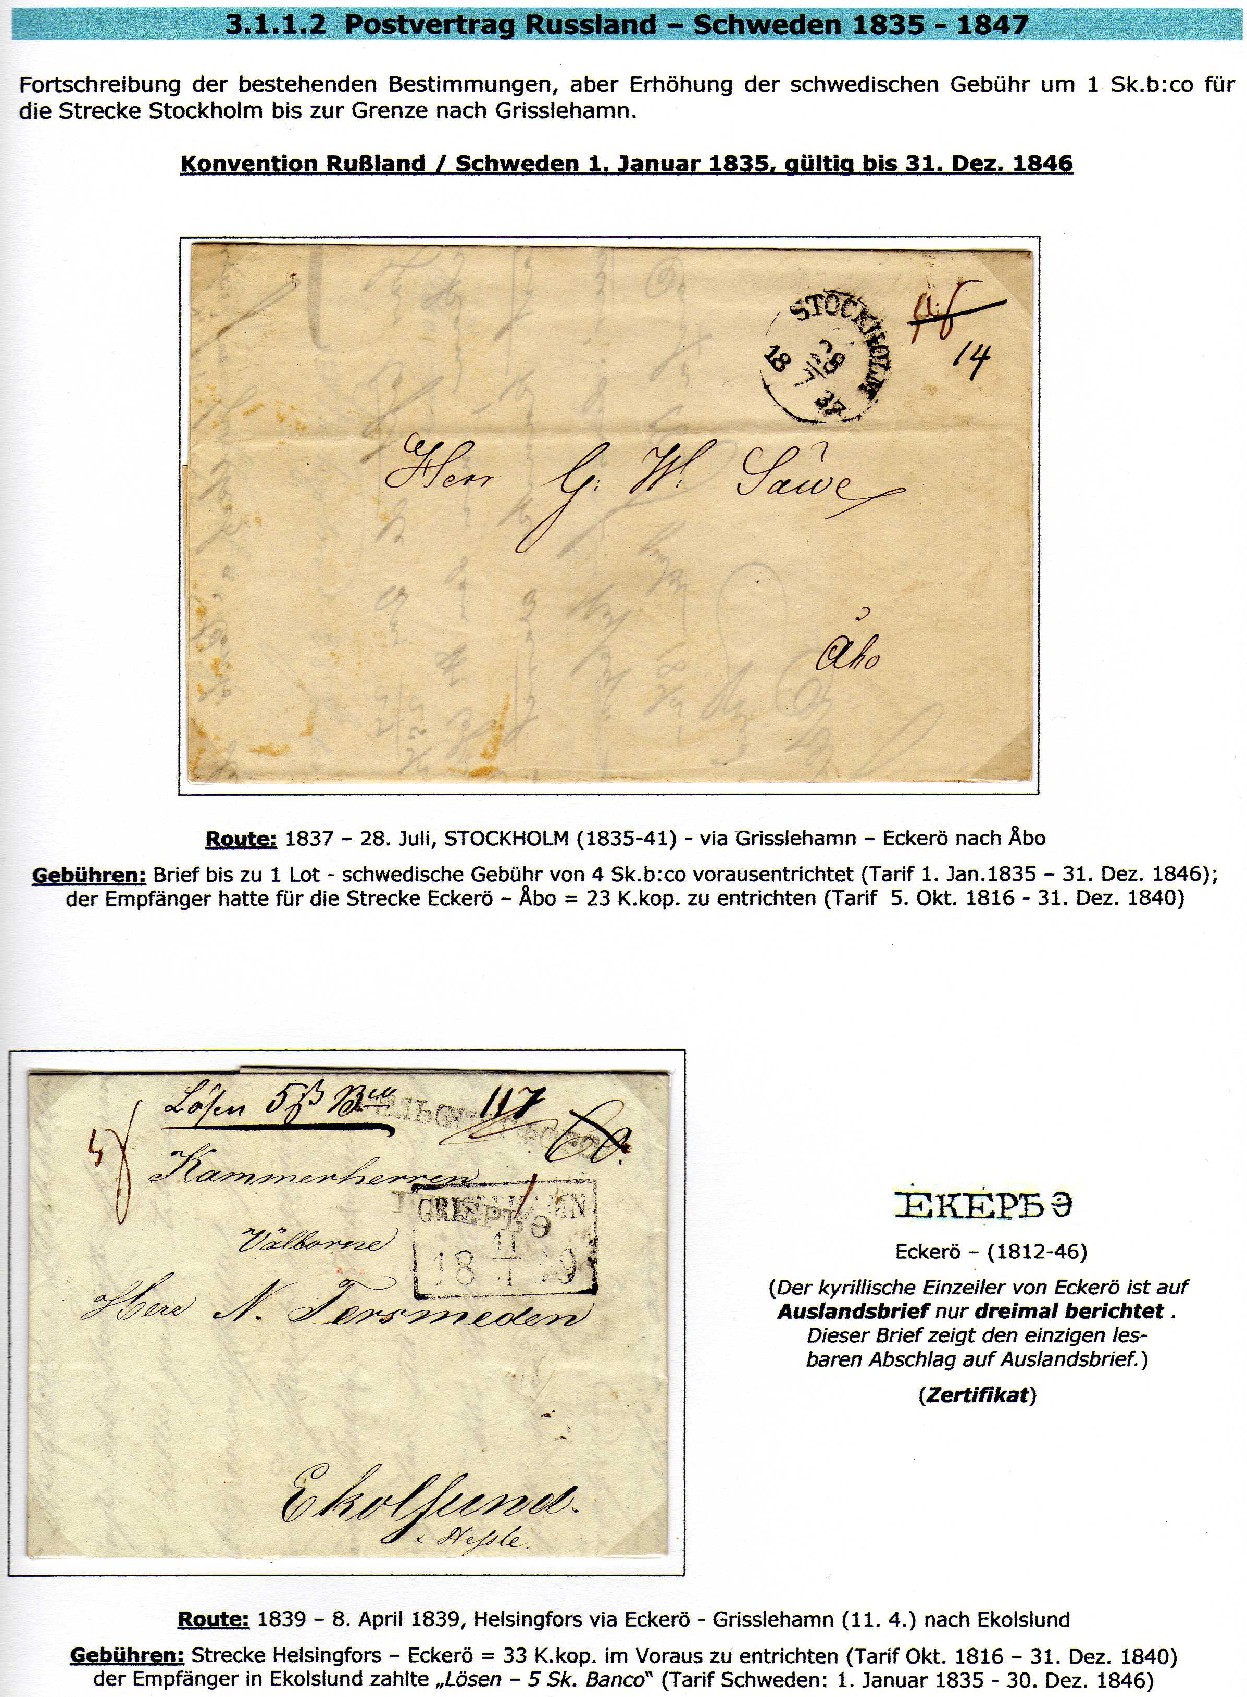 3.1.1.2 Postvertrag Russland – Schweden 1835 - 1847
Fortschreibung der bestehenden Bestimmungen, aber Erhöhung der schwedischen Gebühr um 1 Sk.b:co für
die Strecke Stockholm bis zur Grenze nach Grisslehamn.
Konvention Rußland / Schweden 1. Januar 1835, gültig bis 31. Dez. 1846
STOCKHOLM
18 28 7 37
14
Herr G. W. Säwe
Åbo
Route: 1837 – 28. Juli, STOCKHOLM (1835-41) - via Grisslehamn – Eckerö nach Åbo
Gebühren: Brief bis zu 1 Lot - schwedische Gebühr von 4 Sk.b:co vorausentrichtet (Tarif 1. Jan.1835 – 31. Dez. 1846);
der Empfänger hatte für die Strecke Eckerö – Åbo = 23 K.kop. zu entrichten (Tarif 5. Okt. 1816 - 31. Dez. 1840)
Lösen 5ß Bco
117
Kammerherren
Välborne
GRISSLEHAMN
ЕКЕРЪЭ
18 11 4 39
Herr N. Tersmeden
Ekolsund.
ЕКЕРЪЭ
Eckerö – (1812-46)
(Der kyrillische Einzeiler von Eckerö ist auf
Auslandsbrief nur dreimal berichtet .
Dieser Brief zeigt den einzigen les-
baren Abschlag auf Auslandsbrief.)
(Zertifikat)
Route: 1839 – 8. April 1839, Helsingfors via Eckerö - Grisslehamn (11. 4.) nach Ekolslund
Gebühren: Strecke Helsingfors – Eckerö = 33 K.kop. im Voraus zu entrichten (Tarif Okt. 1816 – 31. Dez. 1840)
der Empfänger in Ekolslund zahlte „Lösen – 5 Sk. Banco“ (Tarif Schweden: 1. Januar 1835 - 30. Dez. 1846)